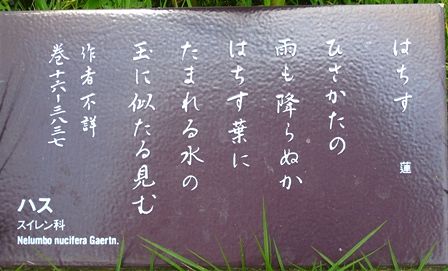 はちす 蓮
ひさかたの
雨も降らぬか
はちす葉に
たまれる水の
玉に似たる見む
作者不詳
巻十六ー三八三七
ハス
スイレン科
Nelumbo nucifera Gaertn.